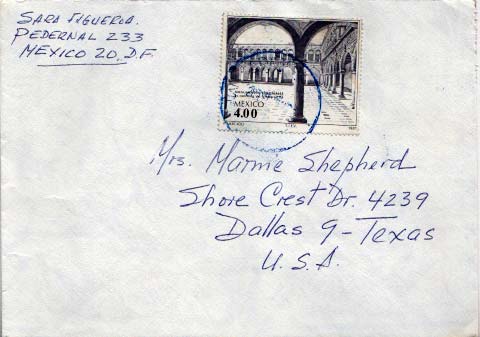 SARA FIGUEROA.
PEDERNAL 233
MEXICO 20, D.F.
MEXICO
4.00
Mrs. Marnie Shepherd
Shore Crest Dr. 4239
Dallas 9 - Texas
U.S.A.